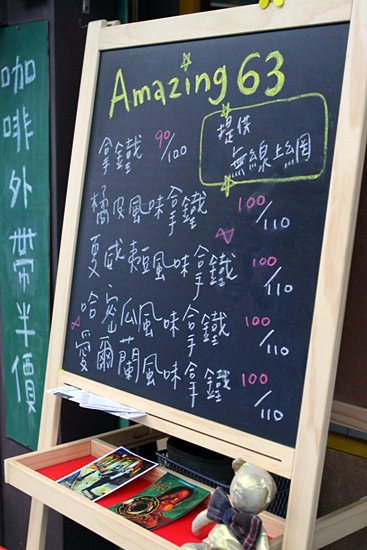 咖啡外帶半價
Amazing 63
提供
無線上網
拿鐵 90/100
橘皮風味拿鐵 100/110
夏威夷風味拿鐵 100/110
哈密瓜風味拿鐵 100/110
愛爾蘭風味拿鐵 100/110